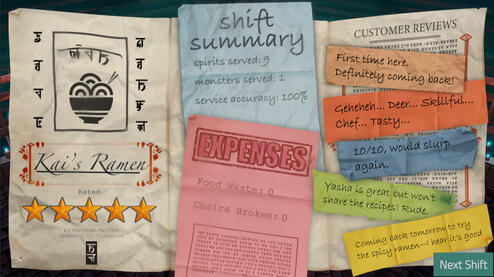 Kai's Ramen
Rated
shift
summary
spirits served: 9
monsters served: 1
service accuracy: 100%
EXPENSES
Food Waste: 0
Chairs Broken: 0
CUSTOMER REVIEWS
First time here.
Definitely coming back!
Geheheh... Deer... Skillful...
Chef... Tasty...
10/10, would slurp
again.
Yasha is great but won't
share the recipes! Rude.
Coming back tomorrow to try
the spicy ramen--I hear it's good
Next Shift